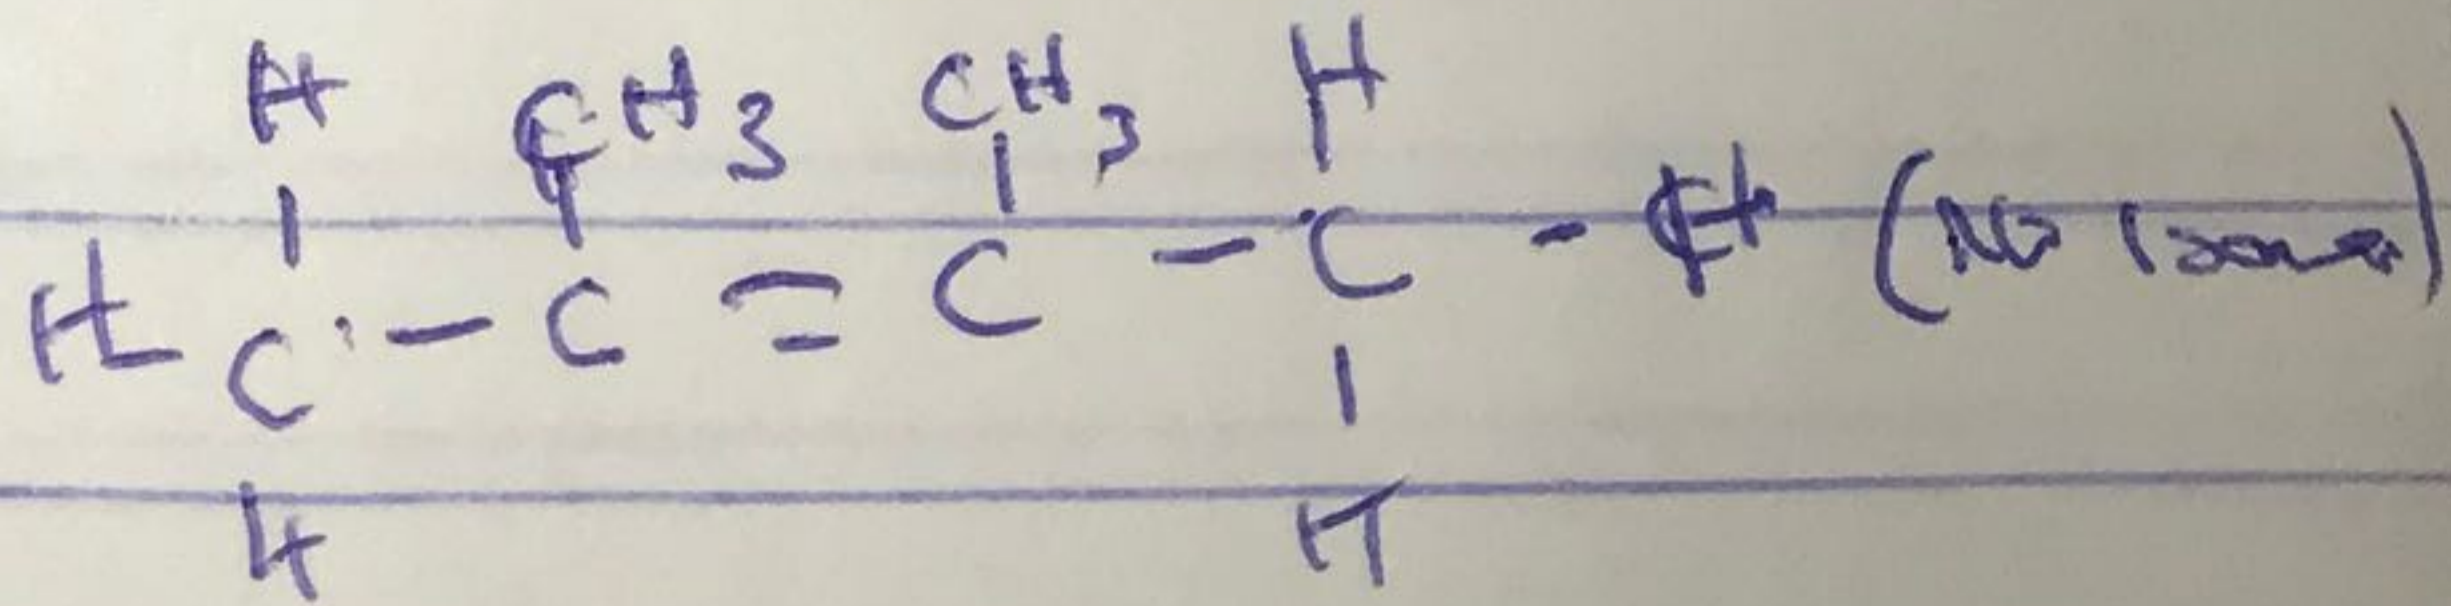 H CH3 CH3 H
H C - C = C - C - H (No Isomer)
H H